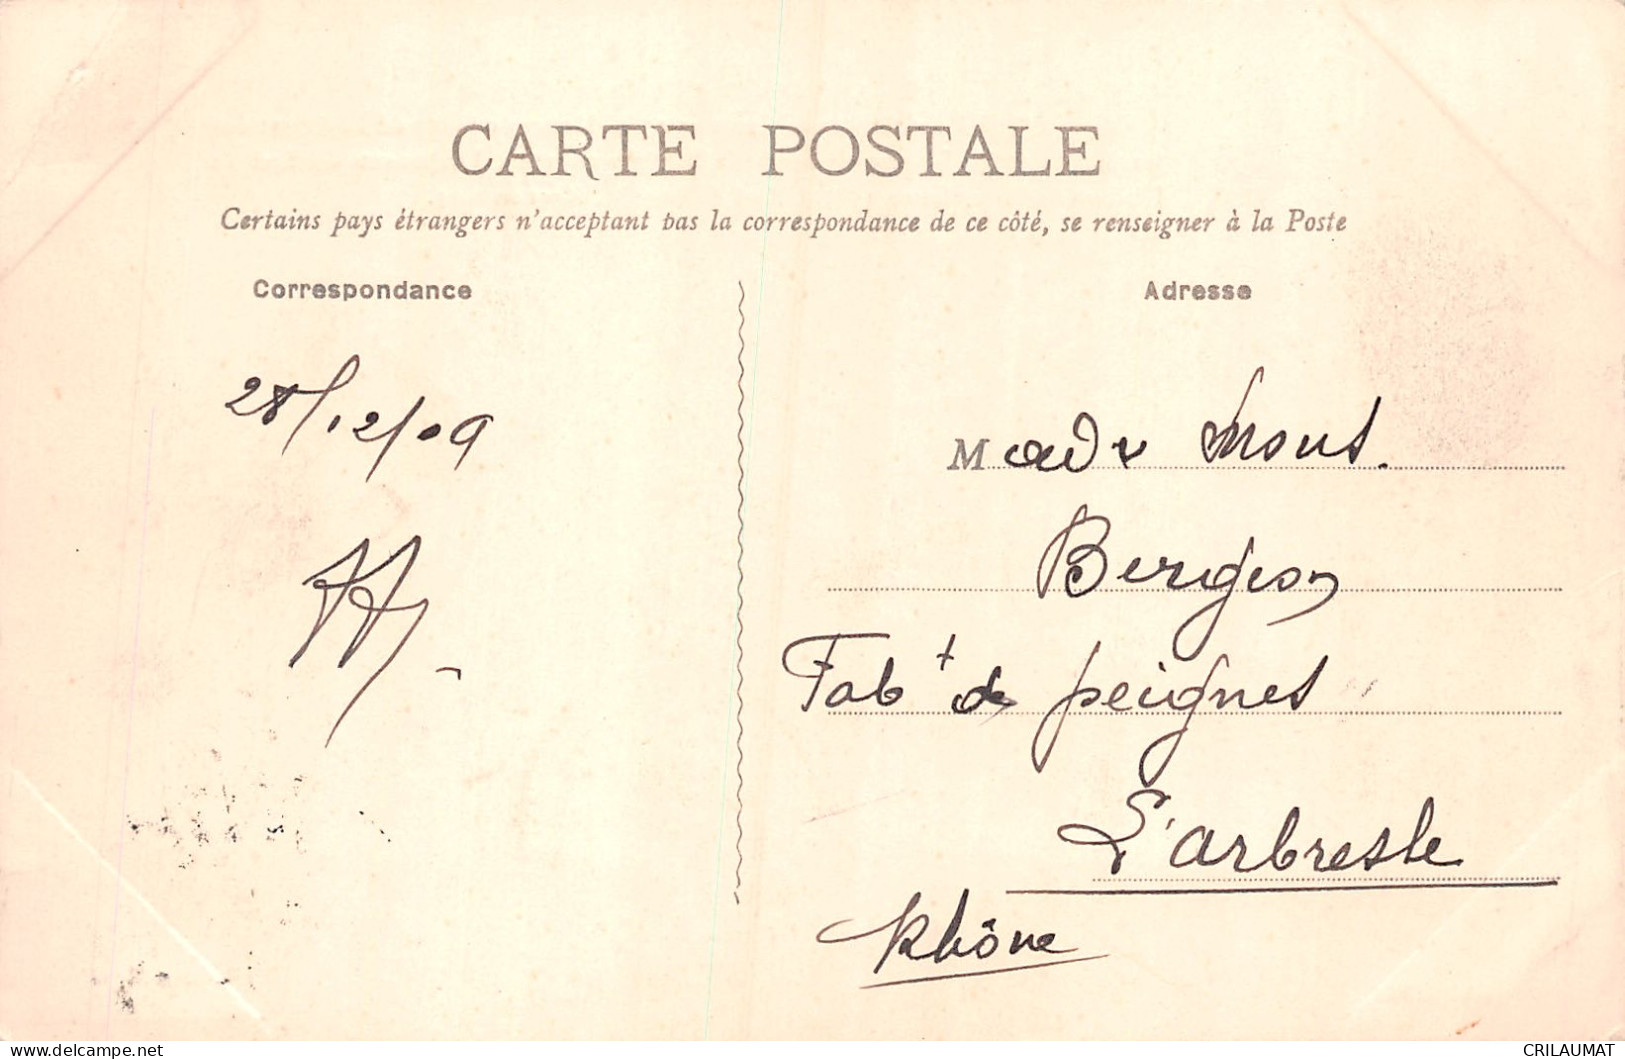 CARTE POSTALE
Certains pays étrangers n'acceptant pas la correspondance de ce côté, se renseigner à la Poste
Correspondance
Adresse
28/12/09
M
Bergeon
Fabt de peignes
L'arbresle
Rhône
www.delcampe.net
CRILAUMAT